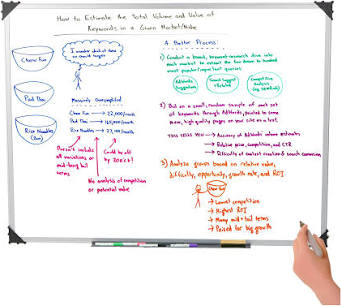 How to Estimate the Total Volume and Value of
Keywords in a Given Market/Niche
Chow Fun
Pad Thai
Rice Noodles
(Gen)
I wonder which of these
we should target
Massively Oversimplified
Chow Fun → 22,000/month
Pad Thai →
Rice Noodles →
Doesn't include
all variations or
mid-long tail
terms
Could be off by
200%+!
No analysis of competition
or potential value
A Better Process:
1) Conduct a broad, keyword-research dive into
each market to extract the few dozen to hundred
most popular/important queries
AdWords
Suggestions
Search Suggest
/Related
Competitive
Analysis
(eg SEMRush)
2) Bid on a small, random sample of each set
of keywords through AdWords, pointed to some
decent, high quality pages on your site as a test
THIS TELLS YOU → Accuracy of AdWords volume estimates
→ Relative price, competition, and CTR
→ Difficulty of content creation & search conversion
3) Analyze groups based on relative value,
difficulty, opportunity, growth rate, and ROI
Chow Fun!
→ Lowest competition
→ Highest ROI
→ Many mid + tail terms
→ Poised for big growth